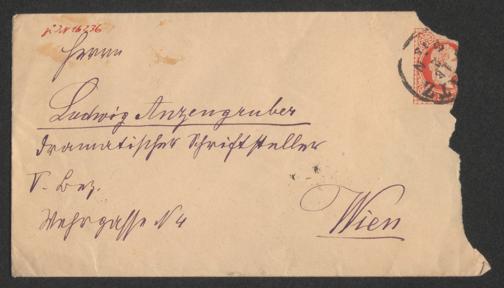 Herrn
Ludwig Anzengruber
dramatischer Schriftsteller
V. Bez.
Wehrgasse No 4
Wien